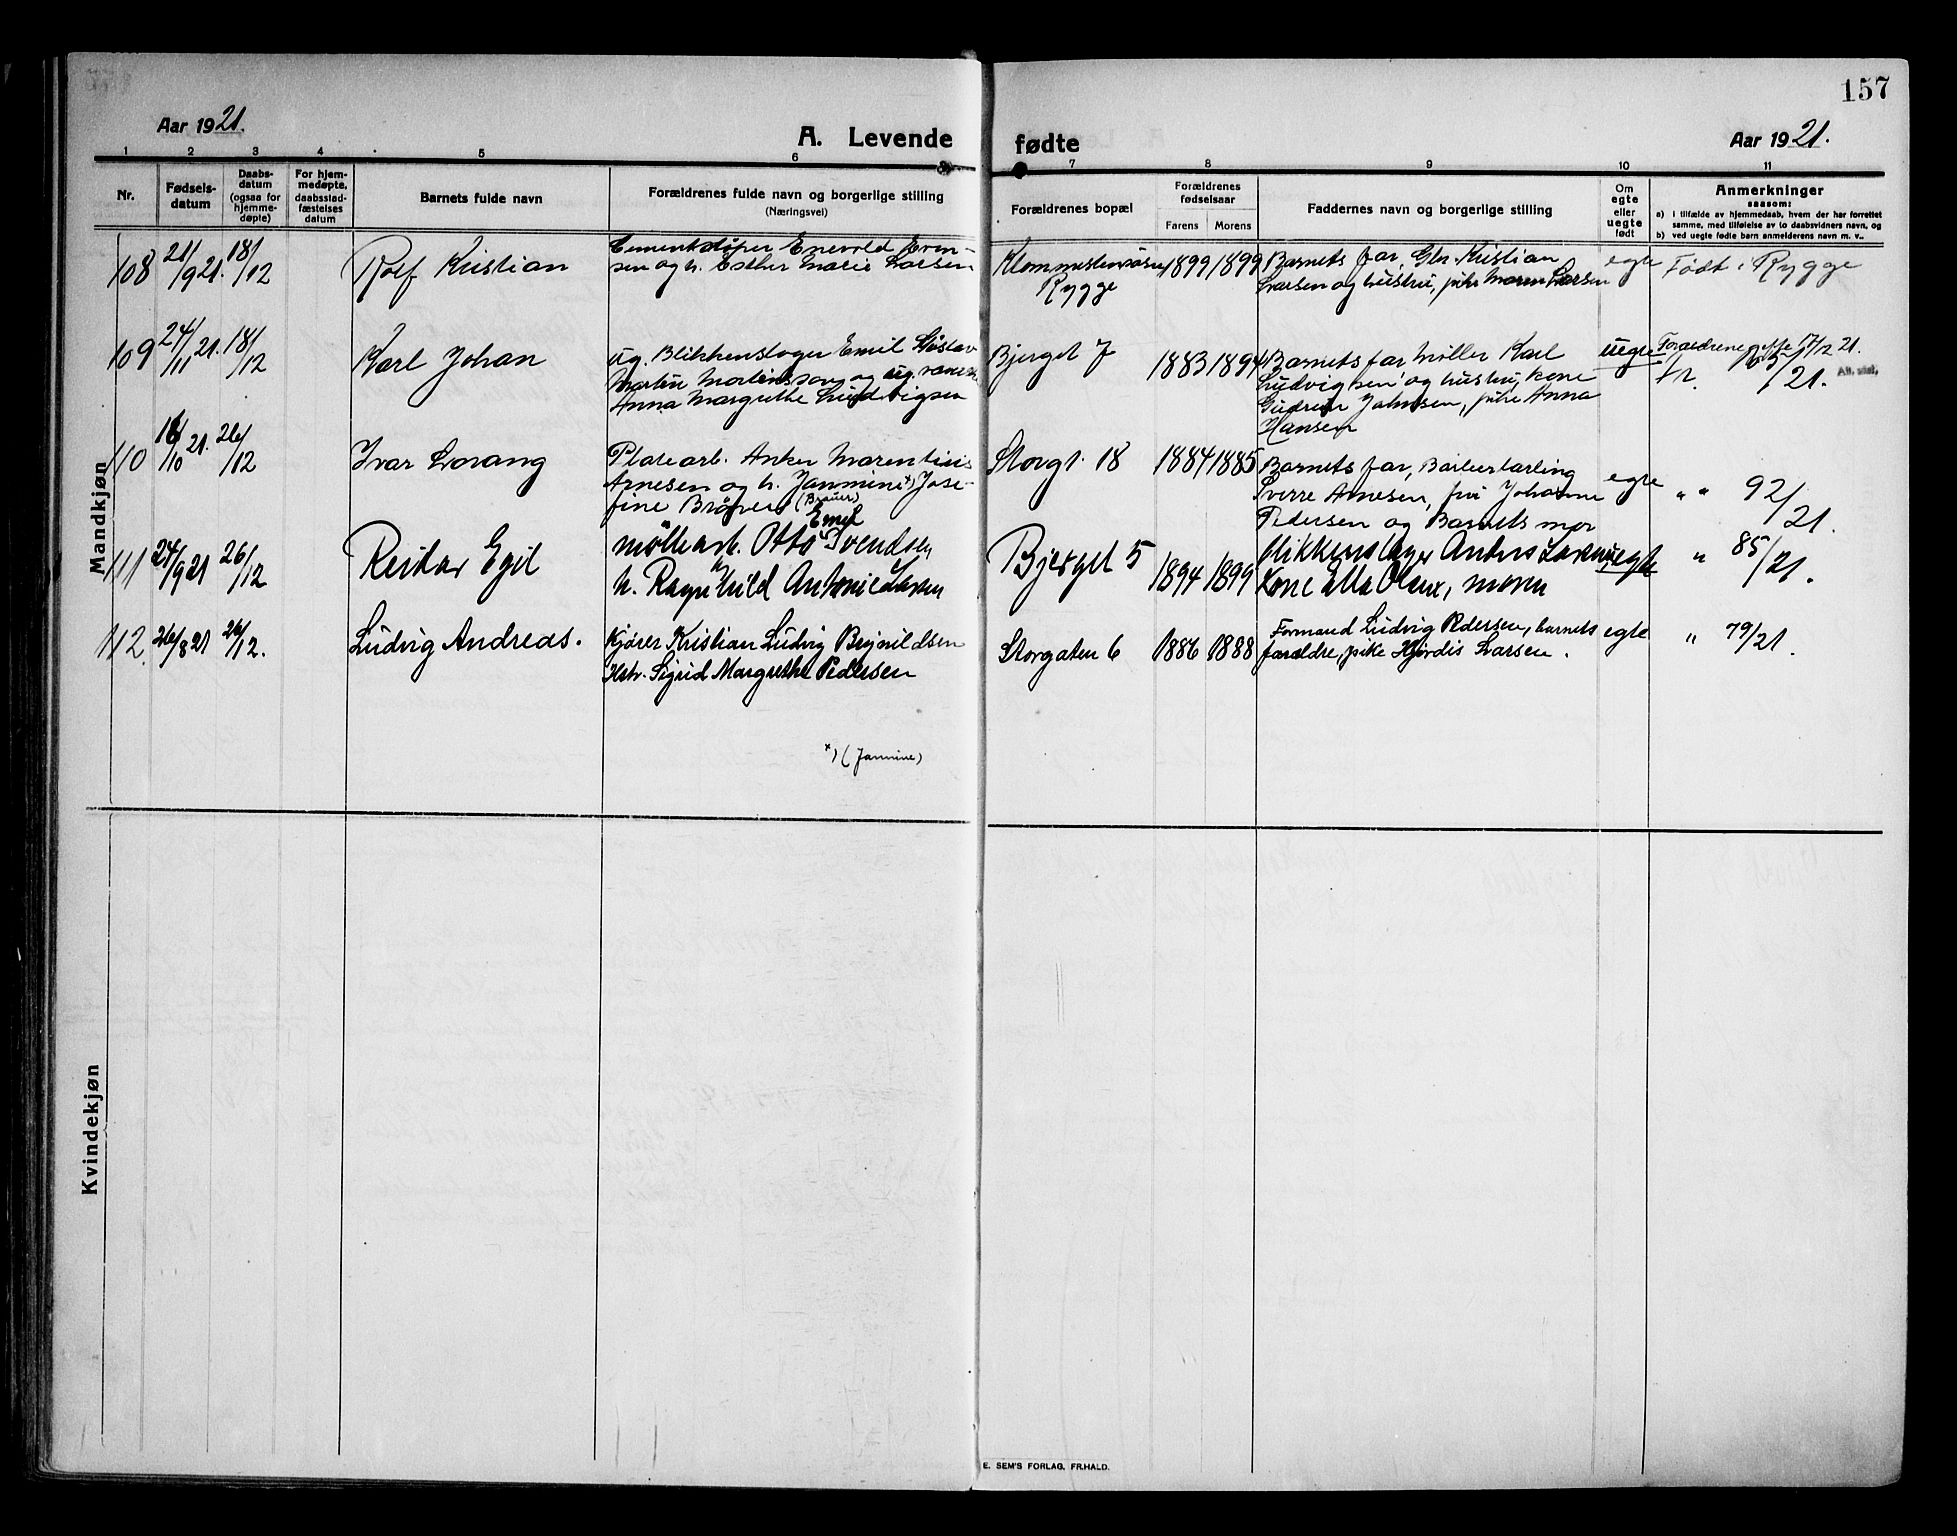 157
Aar 1921.
A. Levende fødte
Aar 1921.
1 2 3 4 5 6 7 8 9 10 11
Nr.
Fødsels-
datum
Daabs-
datum
(ogsaa for
hjemme-
døpte)
For hjem-
medøpte,
daabsstad-
fæstelses
datum
Barnets fulde navn
Forældrenes fulde navn og borgerlige stilling
(Næringsvei)
Forældrenes bopæl
Forældrenes
fødselsaar
Farens Morens
Faddernes navn og borgerlige stilling
Om
egte
eller
uegte
født
Anmerkninger
saasom:
a) i tilfælde av hjemmedaab, hvem der har forrettet
samme, med tilføielse av to daabsvidners navn, og
b) ved uegte født barn anmelderens navn m. v..
Mandkjøn
108 21/9 21. 18/12 Rolf Kristian
Cementstøper Enevold Even-
sen og h. Esther Marie Larsen
Rygge
1899 1899
Barnets far, Gbr. Kristian
Larsen og hustru, pike Maren Larsen
egte
Født i Rygge
109 24/11 21. 18/12 Karl Johan
ug. Blikkenslager Emil Gustav
Martin Mortensson og ug.
Anna Margrethe Ludvigsen
Bjerget 7
1883 1894
Barnets far, Møller Karl
Ludvigsen og hustru, kone
Gudrun Johnsen, pike Anna
Hansen
uegte
Forældrene gifte 17/12 21.
fr. 105/21.
110 18/10 21. 26/12 Ivar Lorang
Platearb. Anker Marentius
Arnesen og h. Janmine +) Jose-
fine Brøver (Brauer)
Storgt. 18
1884 1885
Barnets far, Barberlærling
Sverre Arnesen, frk Johanne
Pedersen og Barnets mor
egte
" " 92/21.
111 24/9 21 26/12 Reidar Egil
møllearb. Otto Emil Svendsen
h. Ragnhild Antonie Larsen
Bjerget 5
1894 1899
blikkenslager Anders Larsen,
Kone Ella Olsen, moren
uegte
" 85/21.
112. 26/8 21 26/12. Ludvig Andreas.
Kjører Kristian Ludvig Brynildsen
Hstr. Sigrid Margrethe Pedersen
Storgaten 6
1886 1888
Formand Ludvig Pedersen, barnets
forældre, pike Hjørdis Larsen.
egte
" 79/21.
+) (Janmine)
Kvindekjøn
E. SEM'S FORLAG, FR.HALD.